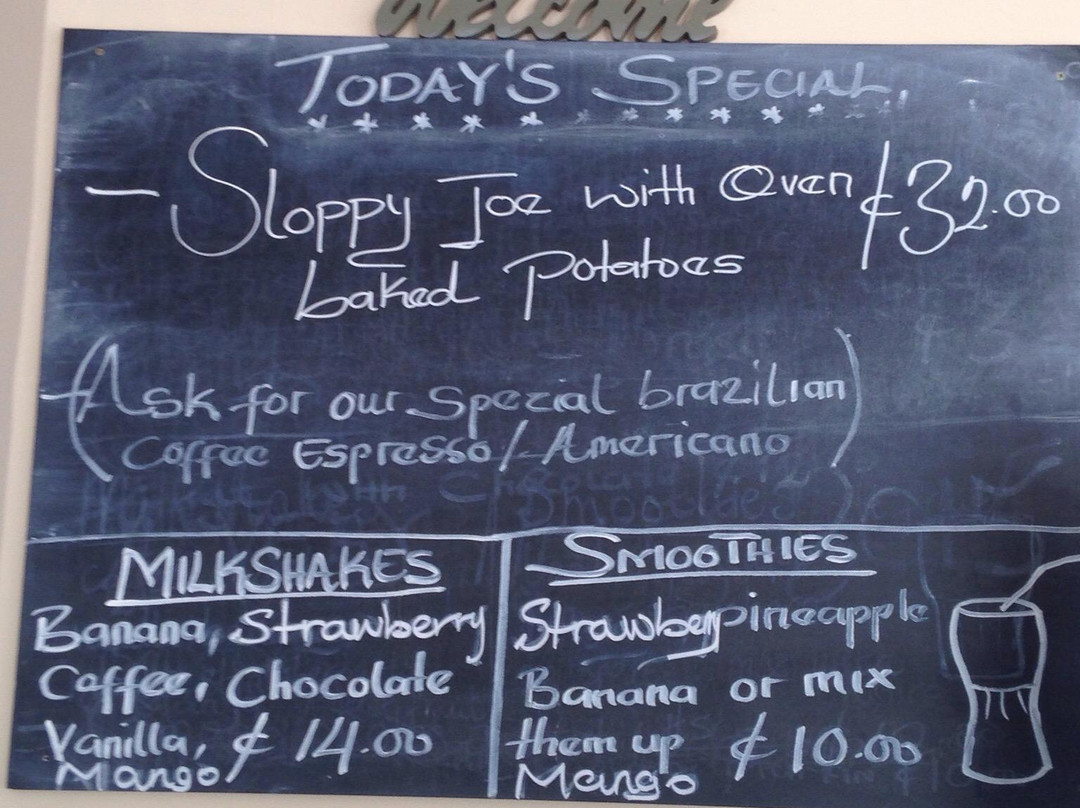 welcome
TODAY'S SPECIAL.
– Sloppy Joe with Oven ₵32.00
baked potatoes
(Ask for our special brazilian
Coffee Espresso/Americano)
MILKSHAKES
Banana, Strawberry
Coffee, Chocolate
Vanilla, ₵ 14.00
Mango
SMOOTHIES
Strawbery pineapple
Banana or mix
them up ₵ 10.00
Mango